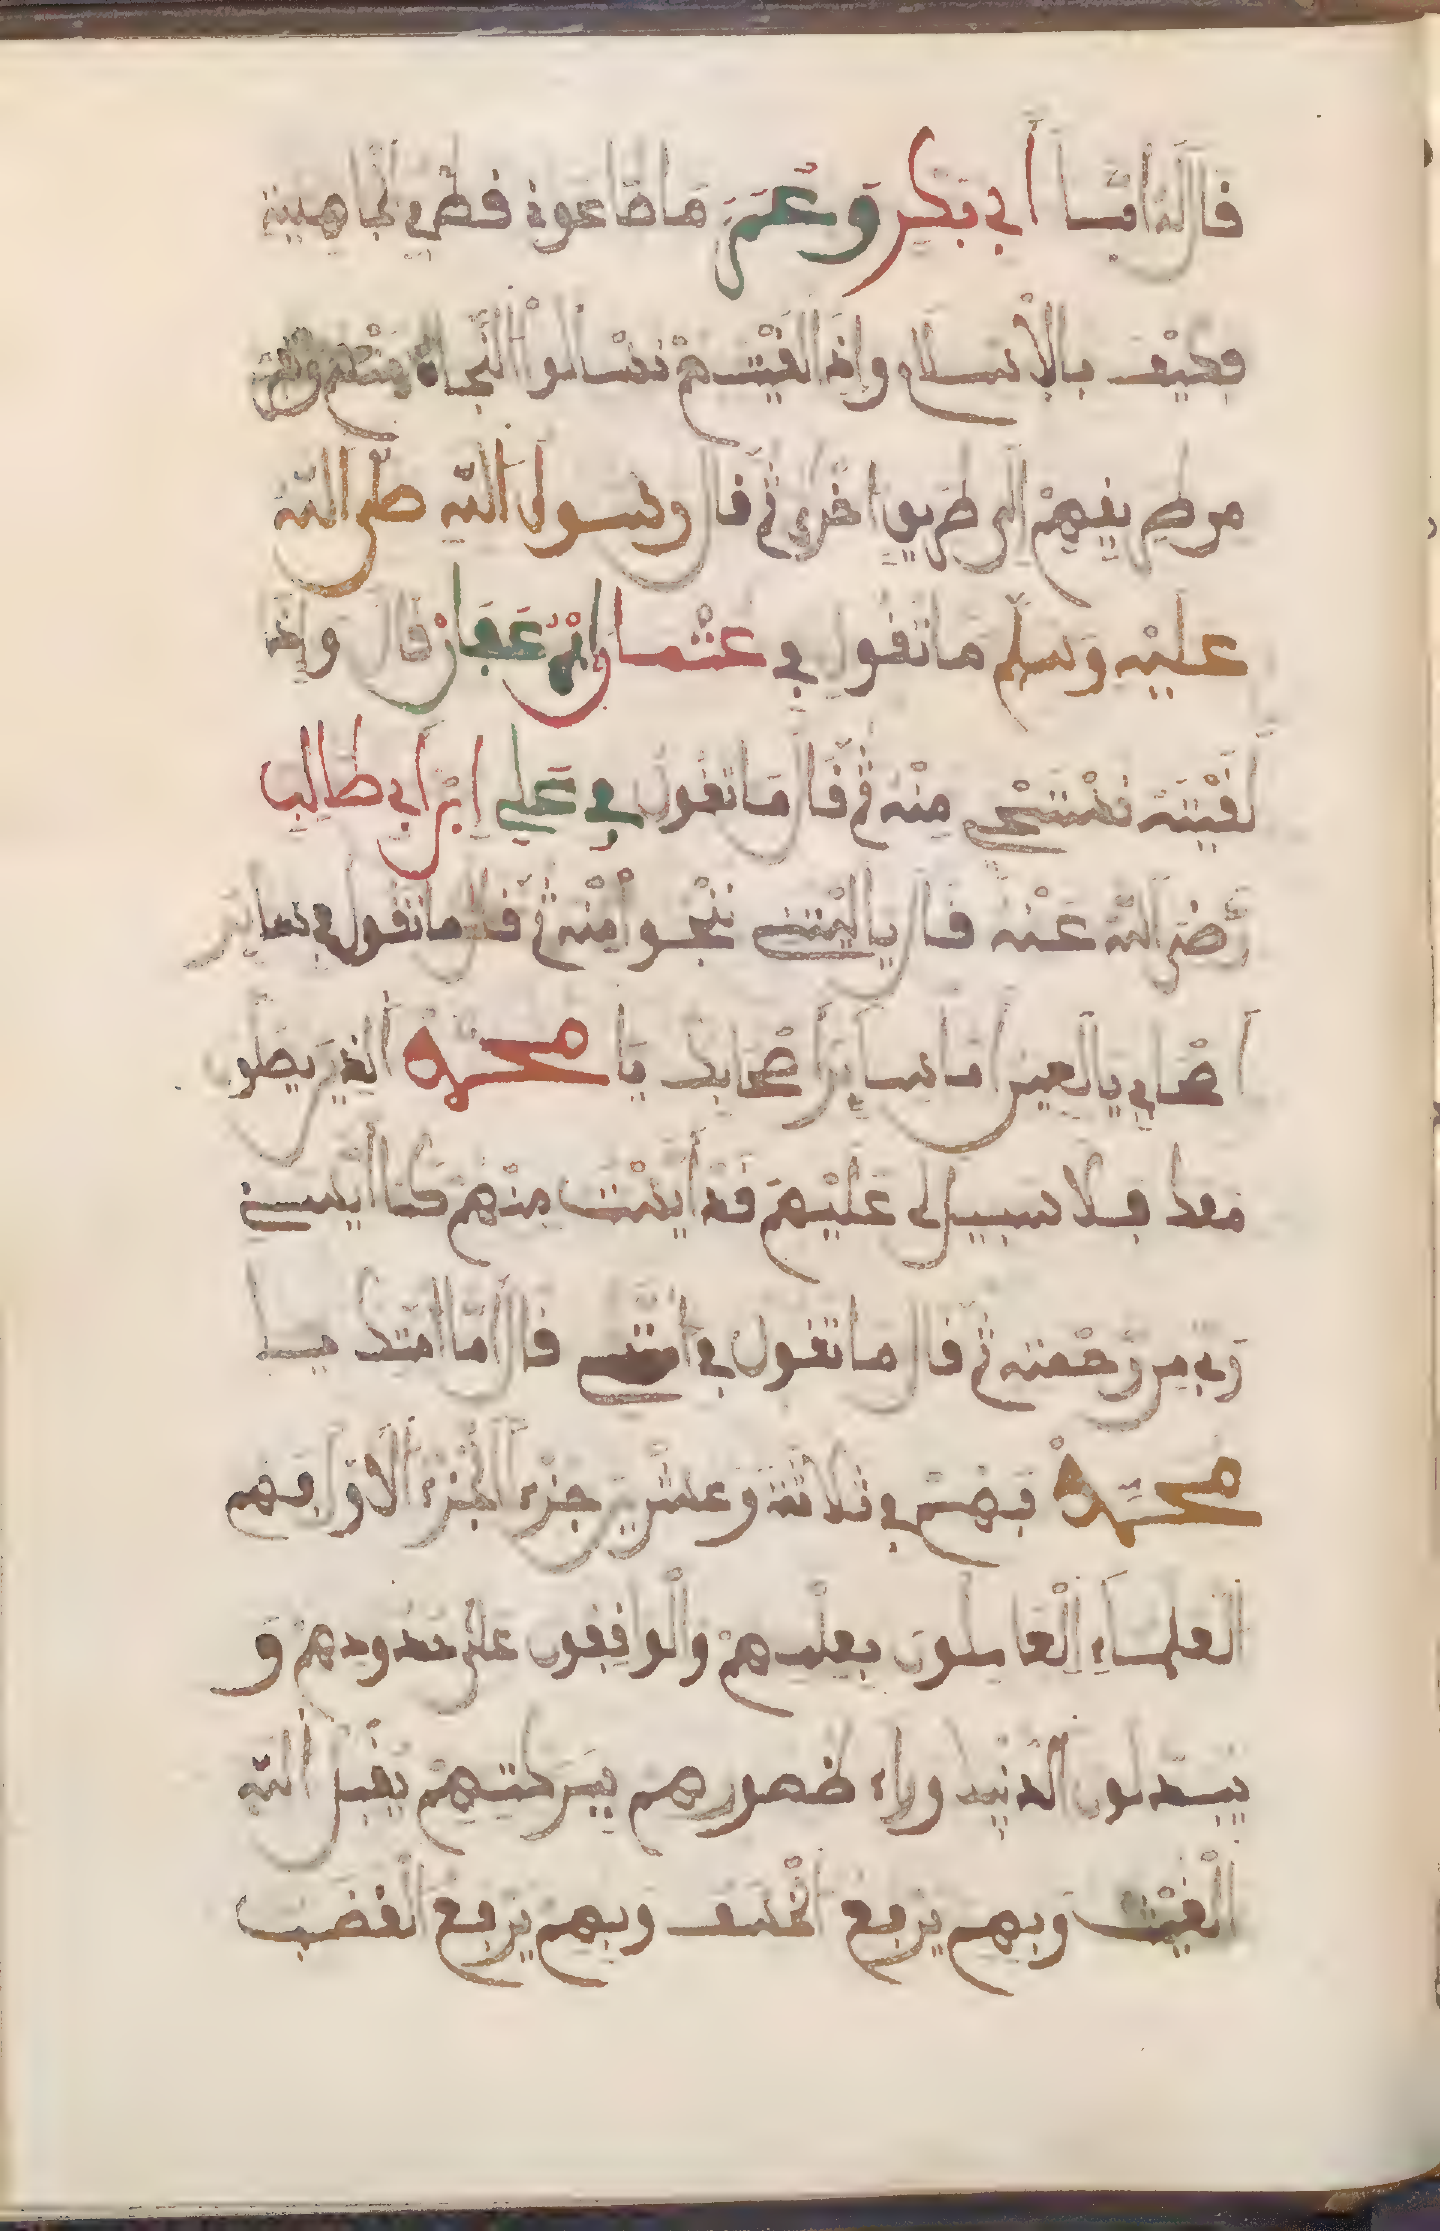 قال له اما أبي بكر وعمر ماطاعون فط في الجاهلية
فكيف بالإسلام وإذا لقيتهم نسألوا النجاة منهم
من طريقهم إلى طريق اخرى ثم قال رسول الله صلى الله
عليه وسلم ما تقول في عثمان ابن عفان قال وإذا
لقيته نستحي منه ثم قال ما تقول في علي ابن أبي طالب
رضي الله عنه قال يا ليتني ننجوا منه ثم قال ما تقول في ساير
أصحابي يا لعين اما ساير أصحابك يا محمد الذين يطون
معك فلا سبيل لي عليهم قد أيست منهم كما أيسني
ربي من رحمته ثم قال ما تقول في أمتي قال أما امتك يا
محمد فهم في ثلاثة وعشرين جزء الجزء الأول فهم
العلماء العاملون بعلمهم والواقفون على حدودهم و
يبدلون الدنيا وراء ظهورهم ببركتهم يقبل الله
الغيث وبهم يرفع الخسف وبهم يرفع الغضب